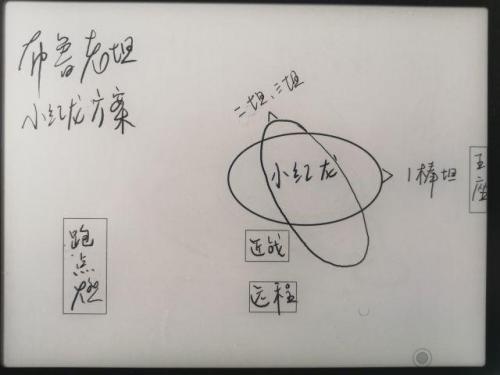 布鲁老坦
小红龙方案
二坦、三坦
小红龙
1棒坦
王座
近战
远程
跑点燃